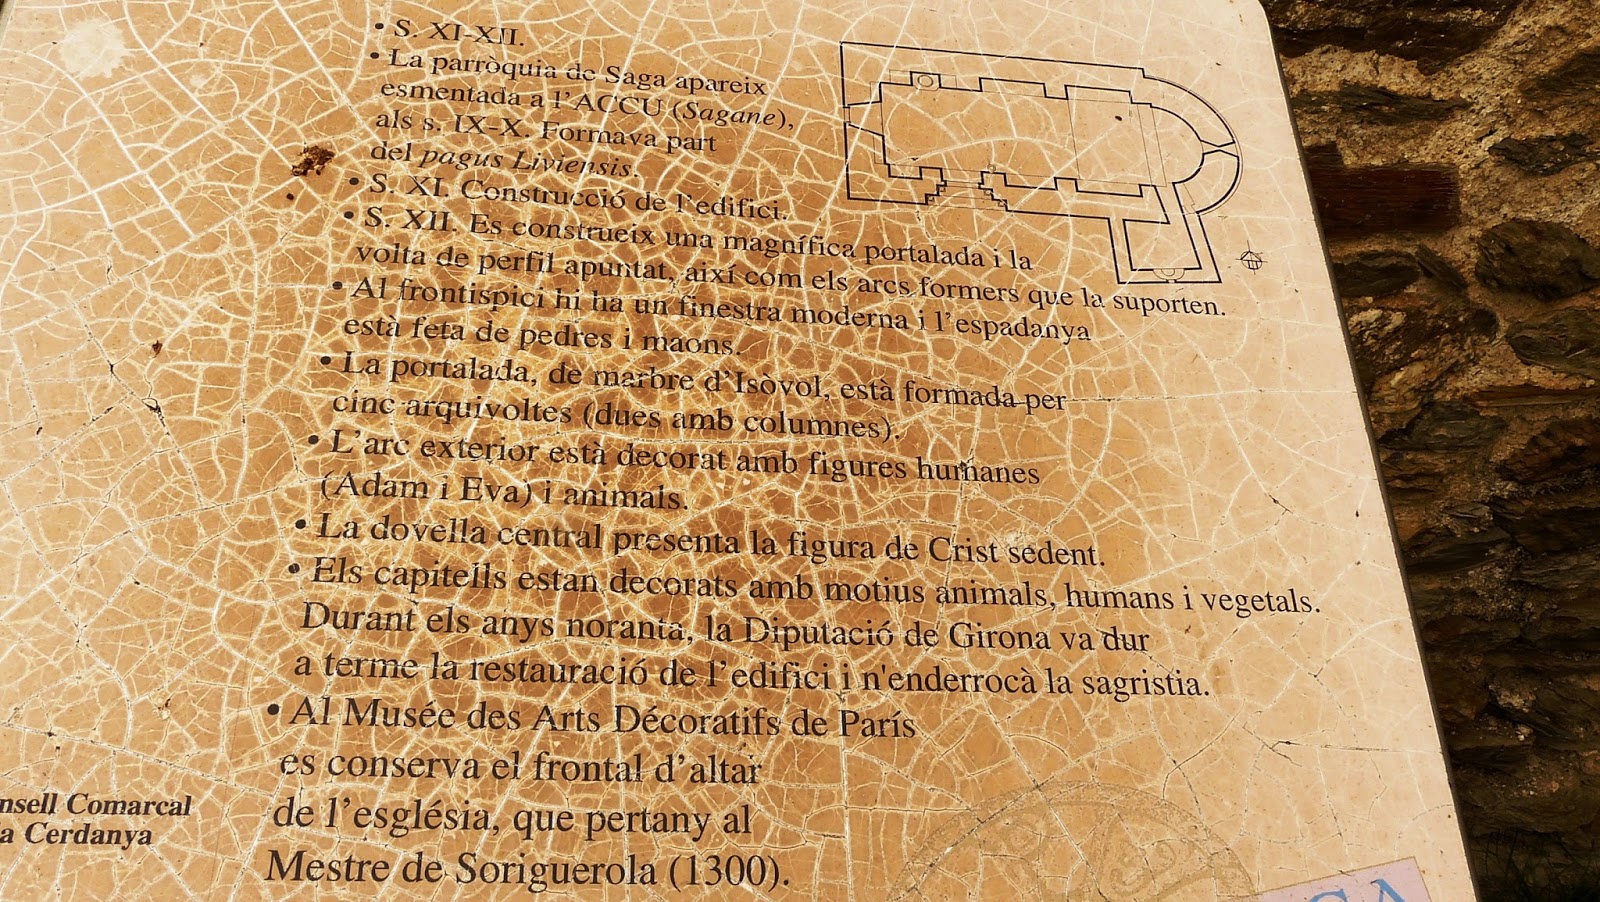 • S. XI-XII.
• La parròquia de Saga apareix
esmentada a l'ACCU (Sagane),
als s. IX-X. Formava part
del pagus Liviensis.
• S. XI. Construcció de l'edifici.
• S. XII. Es construeix una magnífica portalada i la
volta de perfil apuntat, així com els arcs formers que la suporten.
• Al frontispici hi ha un finestra moderna i l'espadanya
està feta de pedres i maons.
• La portalada, de marbre d'Isòvol, està formada per
cinc arquivoltes (dues amb columnes).
• L'arc exterior està decorat amb figures humanes
(Adam i Eva) i animals.
• La dovella central presenta la figura de Crist sedent.
• Els capitells estan decorats amb motius animals, humans i vegetals.
Durant els anys noranta, la Diputació de Girona va dur
a terme la restauració de l'edifici i n'enderrocà la sagristia.
• Al Musée des Arts Décoratifs de París
es conserva el frontal d'altar
de l'església, que pertany al
Mestre de Soriguerola (1300).
nsell Comarcal
a Cerdanya